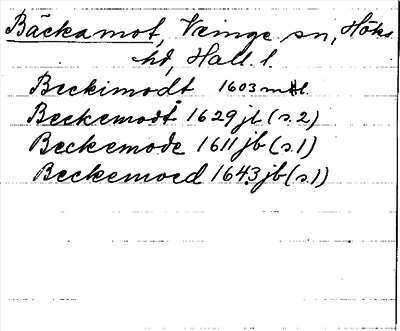 Bäckamot, Veinge sn, Höks
hd, Hall. l.
Beckimodt 1603 mtl.
Beckemodt 1629 jb (s.2)
Beckemode 1611 jb (s.1)
Beckemoed 1643 jb (s.1)